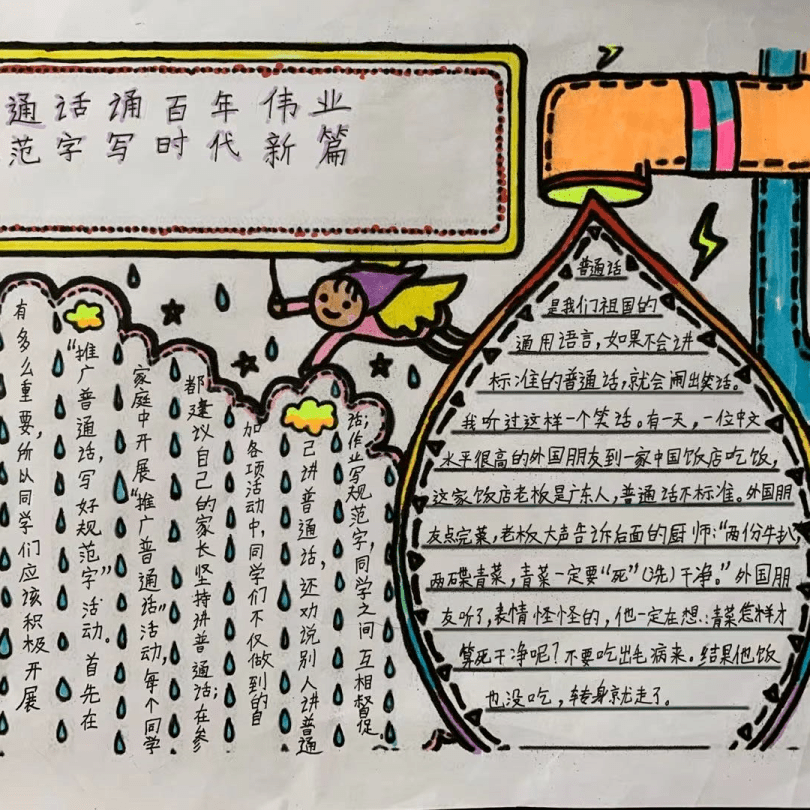 通话诵百年伟业
范字写时代新篇
有多么重要,所以同学们应该积极开展
“推广普通话,写好规范字”活动。首先在
家庭中开展“推广普通话”活动,每个同学
都建议自己的家长坚持讲普通话;在参
加各项活动中,同学们不仅做到的自
己讲普通话,还劝说别人讲普通
话;作业写规范字,同学之间互相督促。
普通话
是我们祖国的
通用语言,如果不会讲
标准的普通话,就会闹出笑话。
我听过这样一个笑话。有一天,一位中文
水平很高的外国朋友到一家中国饭店吃饭,
这家饭店老板是广东人,普通话不标准。外国朋
友点完菜,老板大声告诉后面的厨师:“两份牛扒
两碟青菜,青菜一定要“死”(洗)干净。”外国朋
友听了,表情怪怪的,他一定在想:青菜怎样才
算死干净呢?不要吃出毛病来。结果他饭
也没吃,转身就走了。